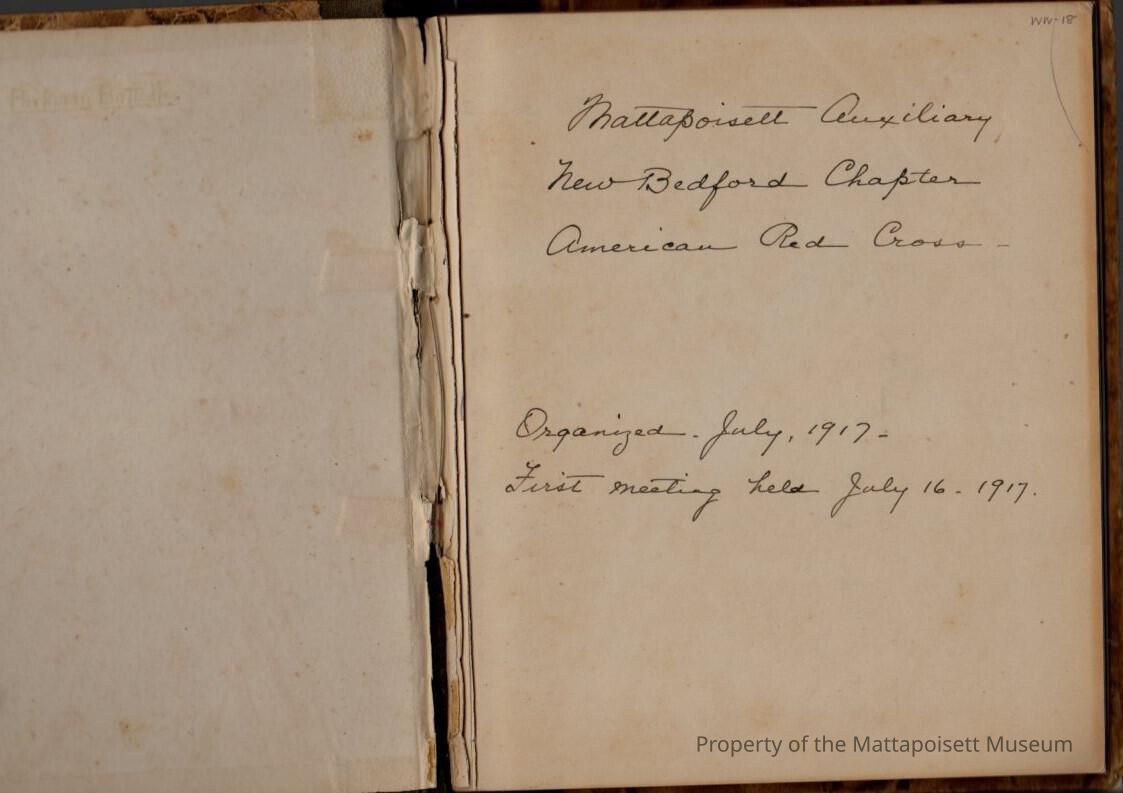 WW-18
Mattapoisett Auxiliary
New Bedford Chapter
American Red Cross -
Organized - July, 1917 -
First meeting held July 16 - 1917.
Property of the Mattapoisett Museum